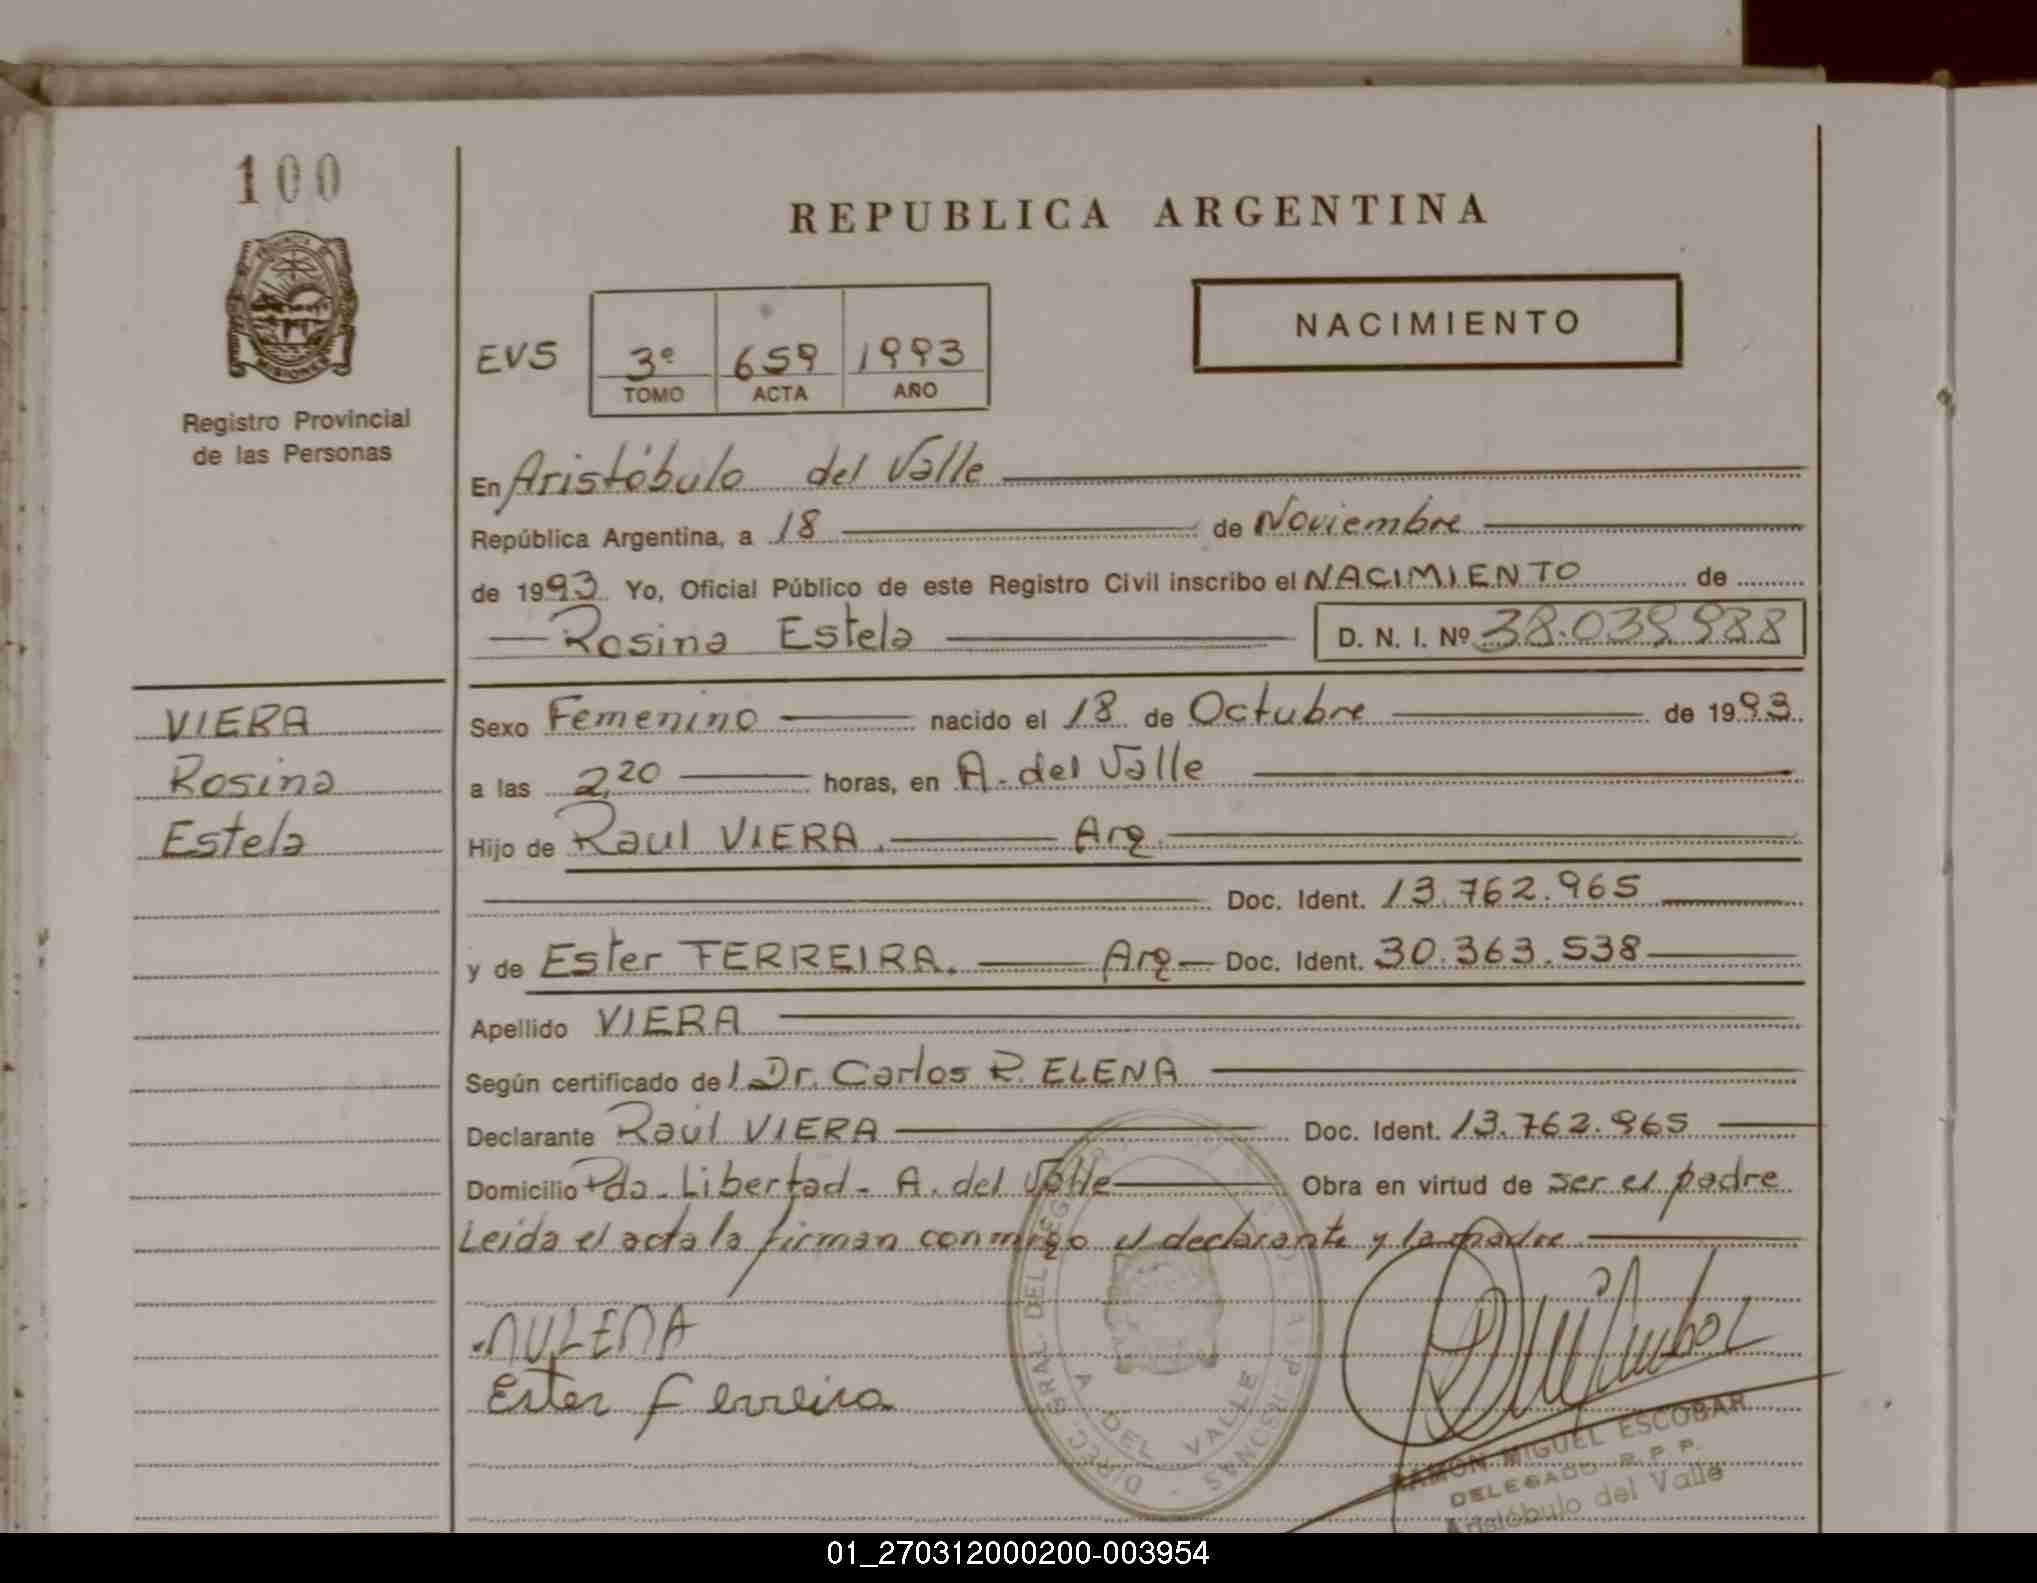 100
REPUBLICA ARGENTINA
MISIONES
Registro Provincial
de las Personas
NACIMIENTO
EVS
3º 659 1993
TOMO ACTA AÑO
En Aristóbulo del Valle
República Argentina, a 18 de Noviembre
de 1993 Yo, Oficial Público de este Registro Civil inscribo el NACIMIENTO de
Rosina Estela D. N. I. Nº 38.039.988
VIERA
Rosina
Estela
Sexo Femenino nacido el 18 de Octubre de 1993
a las 2,20 horas, en A. del Valle
Hijo de Raul VIERA. Arg.
Doc. Ident. 13.762.965
y de Ester FERREIRA. Arg Doc. Ident. 30.363.538
Apellido VIERA
Según certificado del Dr. Carlos R. ELENA
Declarante Raúl VIERA Doc. Ident. 13.762.965
Domicilio Pda. Libertad - A. del Valle Obra en virtud de ser el padre
Leída el acta la firman conmigo el declarante y la madre
Ester Ferreira
A DEL VALLE
RAMON MIGUEL ESCOBAR
DELEGADO R. P. P.
Aristóbulo del Valle
01_270312000200-003954